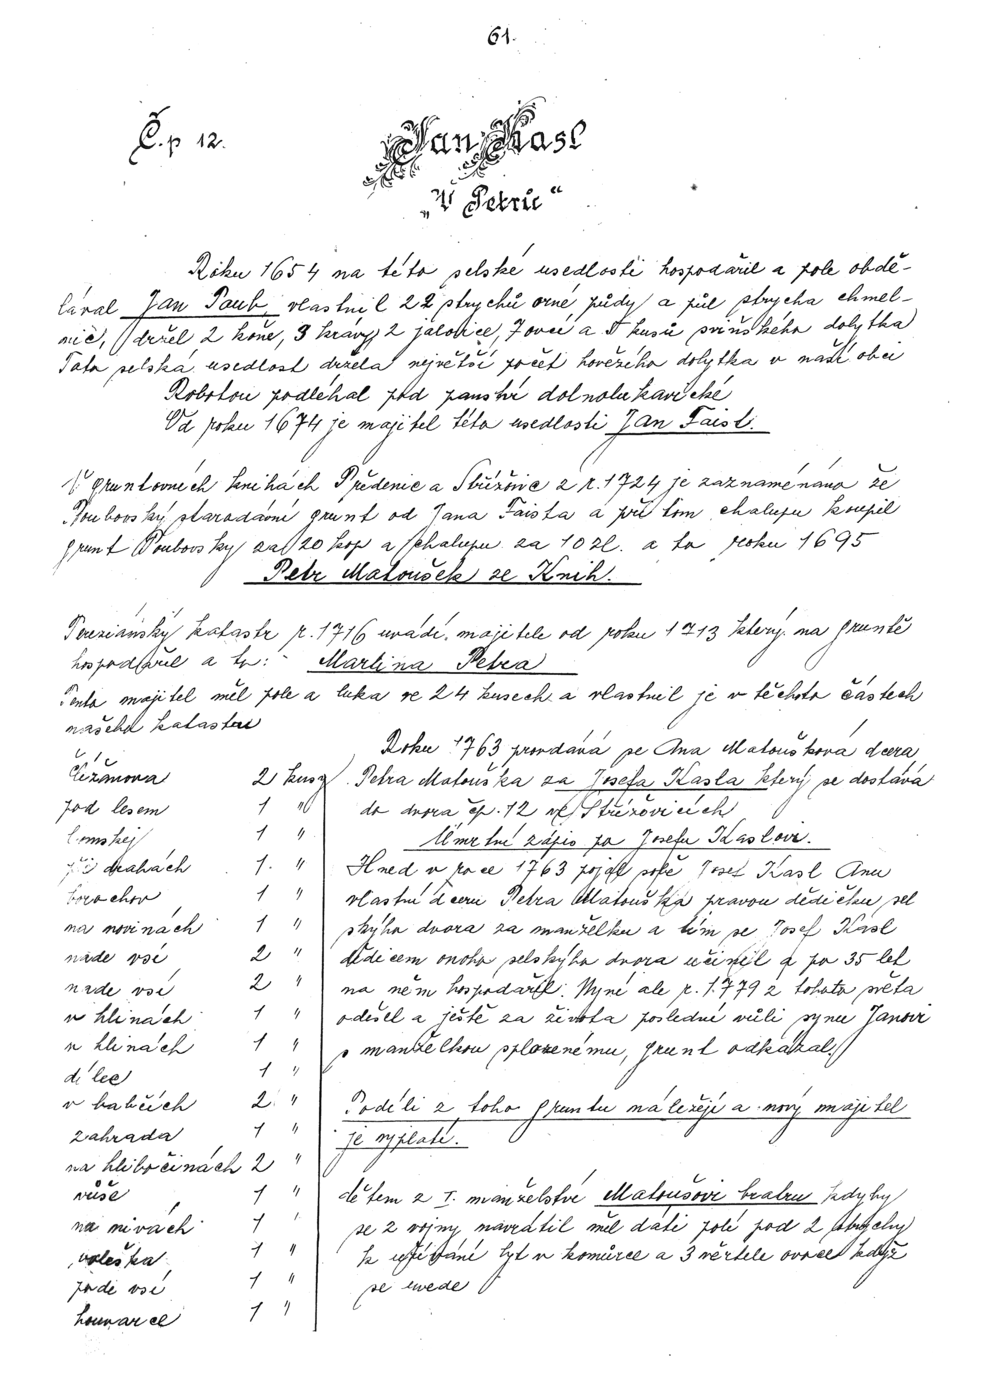 61.
Č.p 12.
Jan Kasl
„V Petrů"
Roku 1654 na této selské usedlosti hospodařil a pole obdě-
lával Jan Poub, vlastnil 22 strychů orné půdy a půl strycha chmel-
nic, držel 2 koně, 3 krávy 2 jalovice, 7 ovcí a 5 kusů sviňského dobytka
Tato selská usedlost držela největší počet hovězího dobytka v naší obci
Robotou podléhal pod panství dolnolukavické
Od roku 1674 je majitel této usedlosti Jan Faist.
V gruntovních knihách Předenic a Střížovic z r. 1724 je zaznamenáno že
Poubovský starodávní grunt od Jana Faista a při tom chalupu koupil
grunt Poubovsky za 20 kop a chalupu za 10 zl. a to roku 1695
Petr Matoušek ze Knih.
Tereziánský katastr r. 1716 uvádí, majitele od roku 1713 který na gruntě
hospodařil a to: Martina Petra
Tento majitel měl pole a luka ve 24 kusech a vlastnil je v těchto částech
našeho katastru
Čížanova 2 kusy
pod lesem 1 "
lomskej 1 "
při drahách 1. "
borochov 1 "
na novinách 1 "
nade vsí 2 "
nade vsí 2 "
v hlinách 1 "
v hlinách 1 "
dílec 1 "
v babčích 2 "
zahrada 1 "
na hlibočinách 2 "
vůše 1 "
na nivách 1 "
voleška 1 "
pode vsí 1 "
houvarce 1 "
Roku 1763 provdává se Ana Matoušková dcera
Petra Matouška za Josefa Kasla který se dostává
do dvora čp. 12 ve Střížovicích
Úmrtní zápis po Josefu Kaslovi.
Hned v roce 1763 pojal sobě Josef Kasl Anu
vlastní dceru Petra Matouška pravou dědičku sel
skýho dvora za manželku a tím se Josef Kasl
dědicem onoho selskýho dvora učinil a po 35 let
na něm hospodařil. Nyné ale r. 1779 z tohoto světa
odešel a ještě za života poslední vůli synu Janovi
s manželkou splozenému, grunt odkázal.
Podíli z toho gruntu náležejí a nový majitel
je vyplatí.
dětem z I. manželství Matoušovi bratru kdyby
se z vojny navrátil měl dáti polí pod 2 strychy
k užívání byt v komůrce a 3 věrtele ovoce když
se uvede